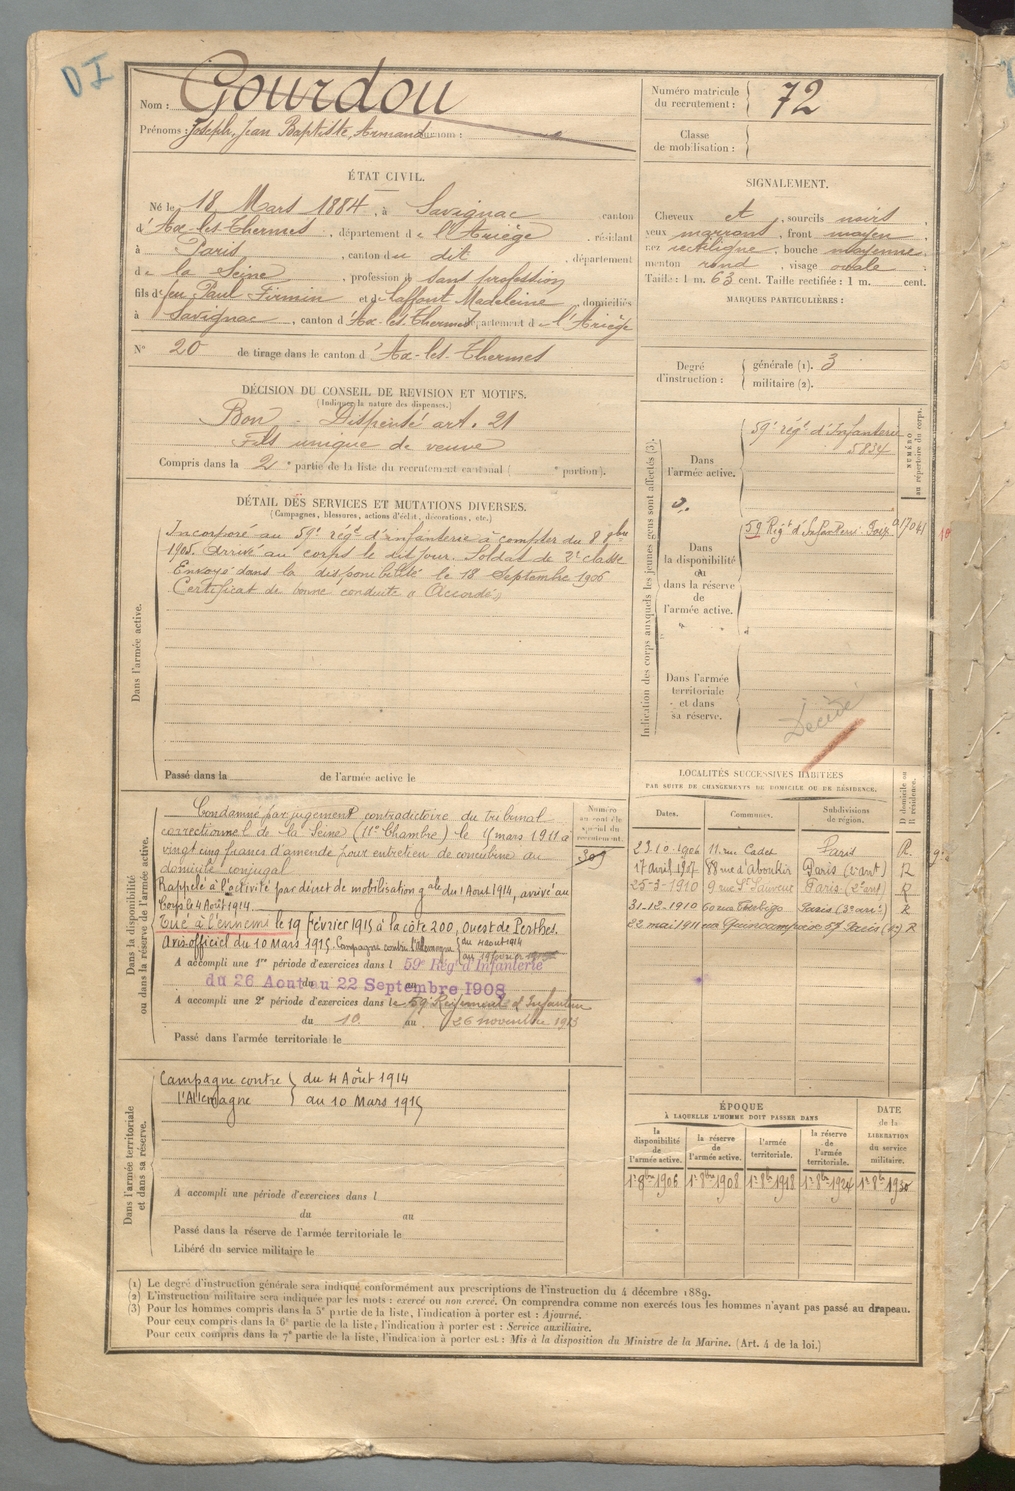 DI
Nom : Gourdou
Prénoms : Joseph, Jean Baptiste, Armand surnom :
Numéro matricule du recrutement : 72
Classe de mobilisation :
ÉTAT CIVIL.
Né le 18 Mars 1884, à Savignac, canton
d'Ax-les-Thermes, département de l'Ariège, résidant
à Paris, canton du dit, département
de la Seine, profession d sans profession
fils de feu Paul Firmin et de Laffont Madeleine, domiciliés
à Savignac, canton d'Ax-les-Thermes, département de l'Ariège
N° 20 de tirage dans le canton d'Ax-les-Thermes
SIGNALEMENT.
Cheveux et, sourcils noirs,
yeux marrons, front moyen,
nez rectiligne, bouche moyenne,
menton rond, visage ovale,
Taille : 1 m. 63 cent. Taille rectifiée : 1 m. cent.
MARQUES PARTICULIÈRES :
Degré d'instruction : générale (1). 3
militaire (2).
DÉCISION DU CONSEIL DE REVISION ET MOTIFS.
(Indiquer la nature des dispenses.)
Bon - Dispensé art. 21
Fils unique de veuve
Compris dans la 2e partie de la liste du recrutement cantonal ( e portion).
DÉTAIL DES SERVICES ET MUTATIONS DIVERSES.
(Campagnes, blessures, actions d'éclat, décorations, etc.)
Dans l'armée active.
Incorporé au 59e régt d'infanterie à compter du 8 8bre
1905. Arrivé au corps le dit jour. Soldat de 2e classe
Envoyé dans la disponibilité le 18 Septembre 1906
Certificat de bonne conduite "Accordé"
Passé dans la de l'armée active le
Indication des corps auxquels les jeunes gens sont affectés (3).
NUMÉRO au répertoire du corps.
Dans l'armée active.
59e régt d'Infanterie
5834
Dans la disponibilité ou dans la réserve de l'armée active.
59 Régt d'Infanterie
Dans l'armée territoriale et dans sa réserve.
Décédé
Dans la disponibilité ou dans la réserve de l'armée active.
Numéro au contrôle spécial du recrutement.
309
Condamné par jugement contradictoire du tribunal
correctionnel de la Seine (11e Chambre) le 4 mars 1911 à
vingt cinq francs d'amende pour entretien de concubine au
domicile conjugal
Rappelé à l'activité par décret de mobilisation gale du 1 Aout 1914, arrivé au
Corps le 4 Août 1914.
Tué à l'ennemi le 19 février 1915 à la côte 200, Ouest de Perthes.
Avis officiel du 10 Mars 1915. Campagne contre l'Allemagne du 4 aout 1914
au 19 février 1915
A accompli une 1re période d'exercices dans l 59e Régt d'Infanterie
du 26 Aout au 22 Septembre 1908
A accompli une 2e période d'exercices dans le 59e Régiment d'Infanterie
du 10 au 26 novembre 1913
Passé dans l'armée territoriale le
LOCALITÉS SUCCESSIVES HABITÉES
PAR SUITE DE CHANGEMENTS DE DOMICILE OU DE RÉSIDENCE.
Dates. Communes. Subdivisions de région. D domicile ou R résidence.
23.10.1906 11 rue Cadet Paris R.
17 avril 1907 88 rue d'Aboukir Paris R
25-3-1910 9 rue St Sauveur Paris (2e arrt) R
31-12-1910 60 rue Turbigo Paris (3e arrt) R
22 mai 1911 rue Quincampoix 57 Paris R
Dans l'armée territoriale et dans sa réserve.
Campagne contre l'Allemagne
du 4 Août 1914
au 10 Mars 1915
A accompli une période d'exercices dans l
du au
Passé dans la réserve de l'armée territoriale le
Libéré du service militaire le
ÉPOQUE
À LAQUELLE L'HOMME DOIT PASSER DANS
DATE de la LIBÉRATION du service militaire.
la disponibilité de l'armée active. la réserve de l'armée active. l'armée territoriale. la réserve de l'armée territoriale.
1er 8bre 1906 1er 8bre 1908 1er 8bre 1918 1er 8bre 1924 1er 8bre 1930
(1) Le degré d'instruction générale sera indiqué conformément aux prescriptions de l'instruction du 4 décembre 1889.
(2) L'instruction militaire sera indiquée par les mots : exercé ou non exercé. On comprendra comme non exercés tous les hommes n'ayant pas passé au drapeau.
(3) Pour les hommes compris dans la 5e partie de la liste, l'indication à porter est : Ajourné.
Pour ceux compris dans la 6e partie de la liste, l'indication à porter est : Service auxiliaire.
Pour ceux compris dans la 7e partie de la liste, l'indication à porter est : Mis à la disposition du Ministre de la Marine. (Art. 4 de la loi.)